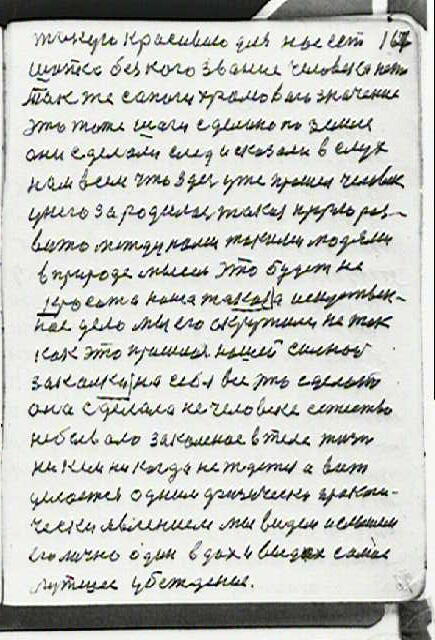 такую красивою для нас ест 167
шапка без кого звание человека нет
так же сапоги хромовы значение
это тоже шаги сделано по земле
они сделали след и сказали в слух
нам всем что здес уже прошел человек
у него зародилас такая
между нами такими людями
в природе мысли это будет не
красота наша такая а искуствен-
ное дело мы его окружили не так
как это нашей силной
закалкай на себя все это сделат
она сделала не человека естество
небывало закаленае в теле
ни кем никогда не ждется а вит
делается одним физически практи-
чески явлением мы видем и слышем
его лично один вдох и выдох самае
лутшее убеждение.